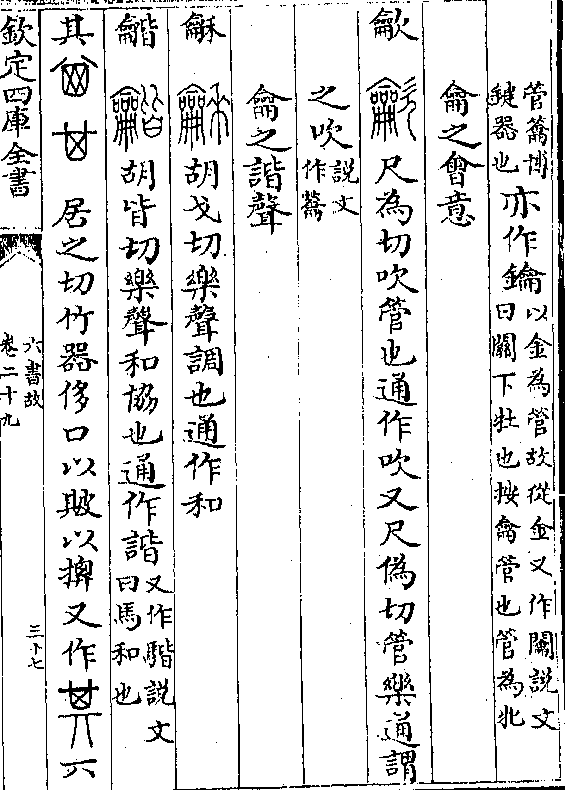 管籥博
鍵器也
亦作鑰
以金為管故從金又作闗說文
曰關下牡也按龠管也管為牝
龠之會意
龡 尺為切吹管也通作吹又尺偽切管樂通謂
之吹
說文
作籥
龠之諧聲
龢 胡戈切樂聲調也通作和
龤 胡皆切樂聲和協也通作諧
又作 說文
曰馬和也
其 居之切竹器侈口以 以捭又作
欽定四庫全書
六書故
卷二十九
三十七